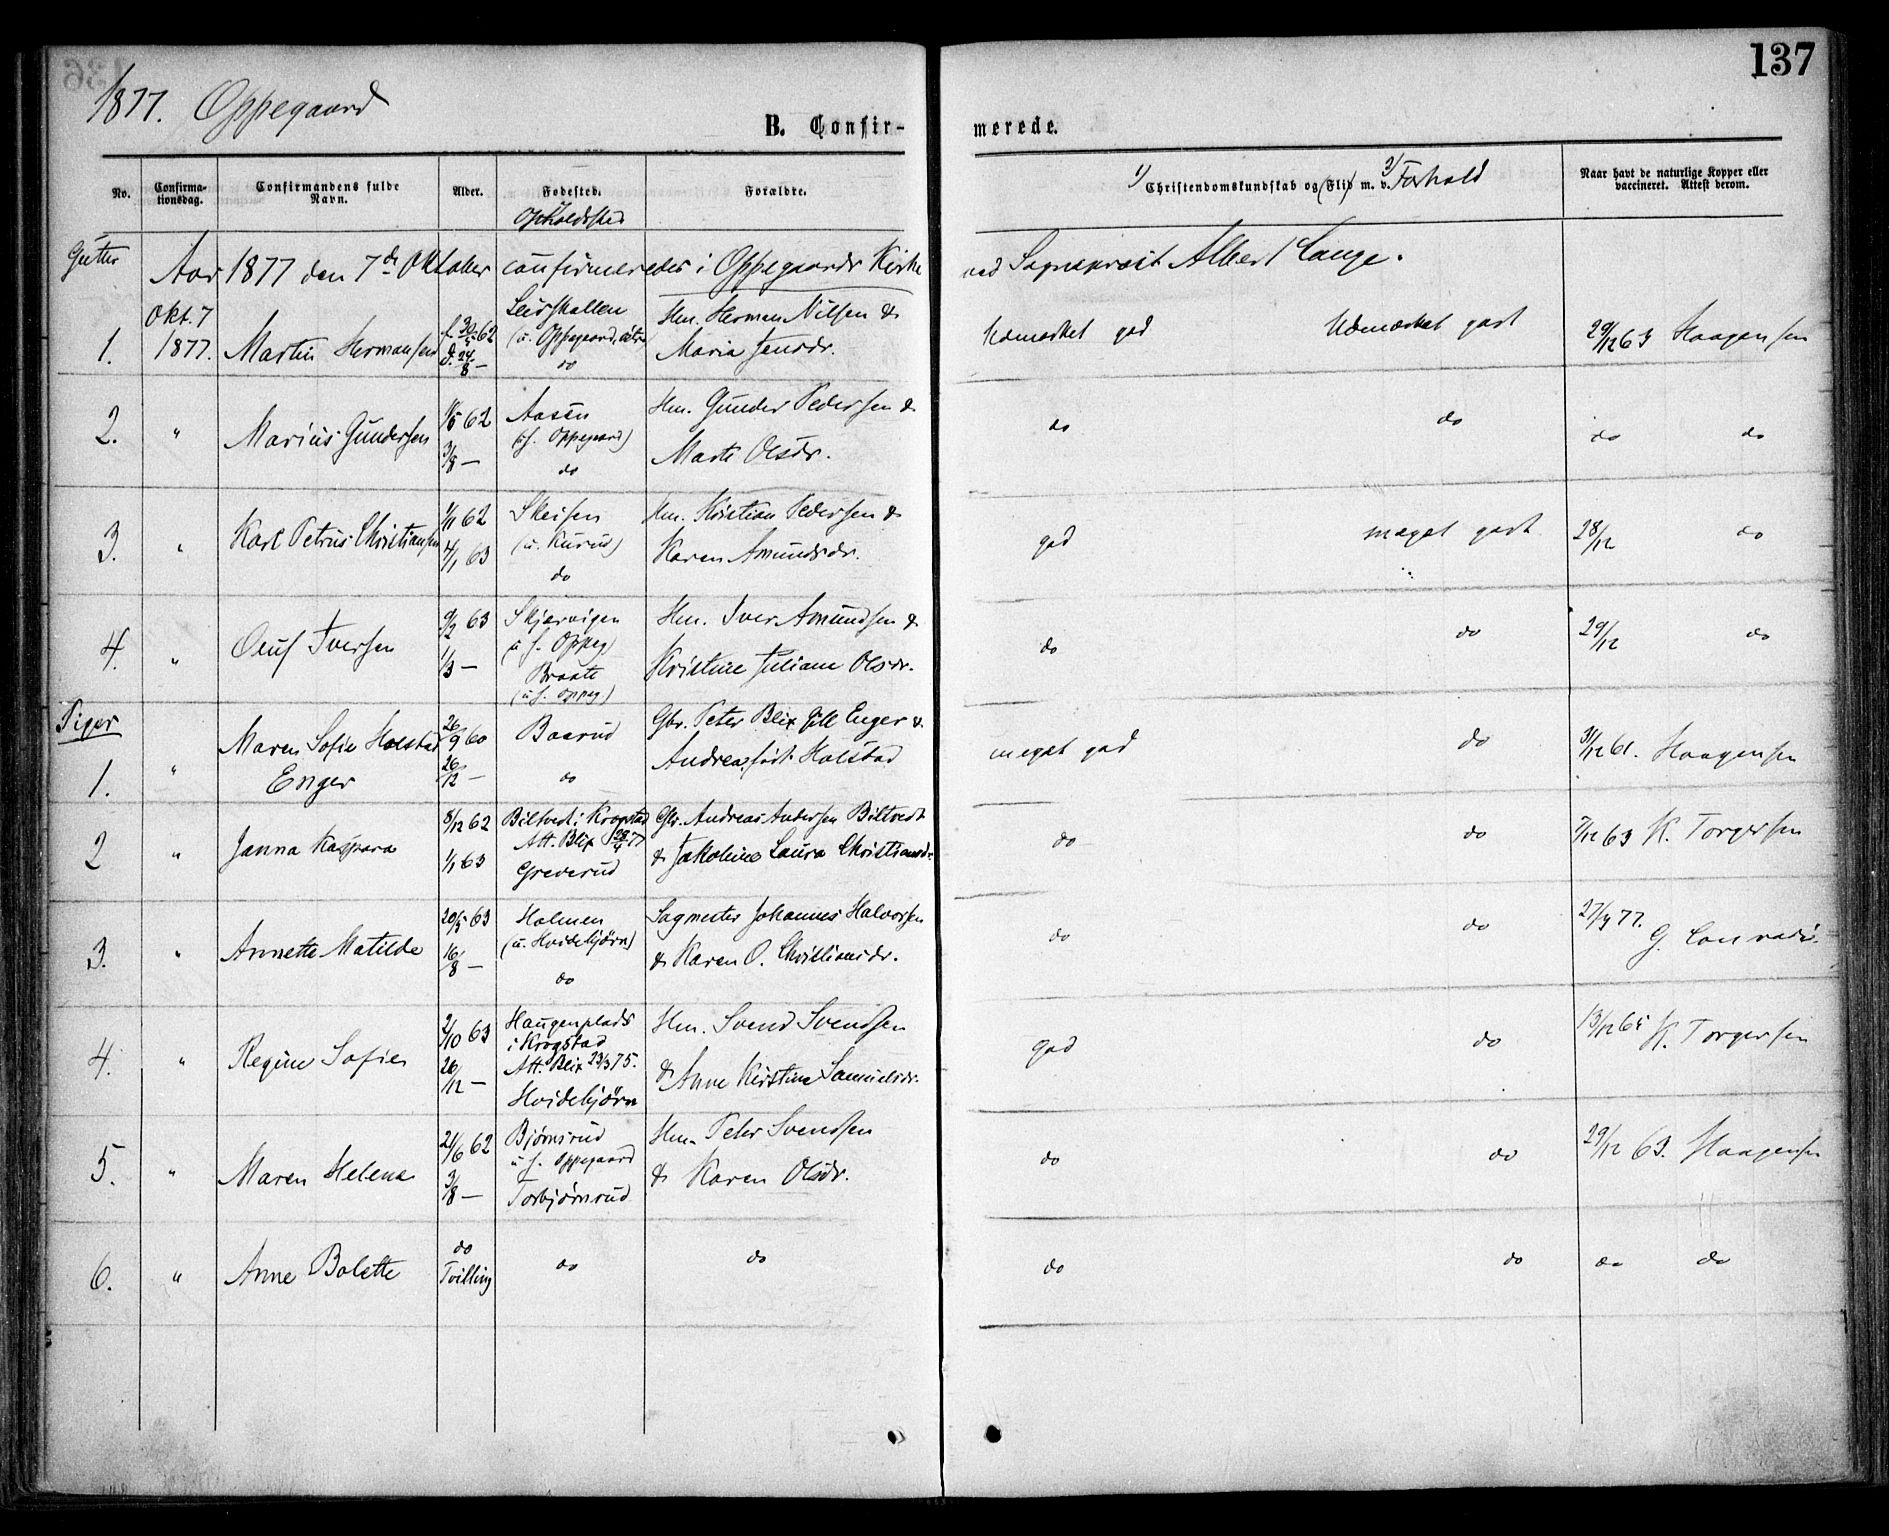 137
1877. Oppegaard
B. Confirmerede.
No. Confirmationsdag. Confirmandens fulde Navn. Alder. Fødested. Opholdssted Forældre. 1) Christendomskundskab og (Flid) m. v. 2) Forhold Naar havt de naturlige Kopper eller vaccineret. Attest derom.
Gutter
Aar 1877 den 7de Oktober confirmeredes i Oppegaards Kirke ved Sognepræst Albert Lange.
Okt. 7 1877.
1. Martin Hermansen f. 30/5 62 d. 24/8 — Leirskallen (u. Oppegaard, østre) do Hm. Herman Nilsen & Maria Jensdr. Udmærket god Udmærket godt 29/12 63 Haagensen
2. " Marius Gundersen 1/5 62 3/8 — Aasen (u. f. Oppegaard) do Hm. Gunder Pedersen & Marte Olsdr. do do do do
3. " Karl Petrus Christiansen 1/11 62 4/1 63 Skeisen (u. Kurud) do Hm. Kristian Pedersen & Karen Amundsdr. god meget godt 28/12 do
4. " Oluf Iversen 9/2 63 1/3 — Skjærvigen u. f. Oppeg) Braate (u. f. Oppeg.) Hm. Iver Amundsen & Kristine Juliane Olsdr. do do 29/12 do
Piger
1. " Maren Sofie Holstad Enger 26/9 60 26/12 — Baarud do Gbr. Peter Blix Gill Enger & Andrea, født Holstad meget god do 31/12 61. Haagensen
2 " Janna Kaspara 8/12 62 1/1 63 Biltvedt i Krogstad Att. Blix 28/4 77 Greverud Gbr. Andreas Andersen Biltvedt & Jakobine Laura Christiansdr. do do 7/12 63 K. Torgersen
3. " Annette Matilde 20/5 63 16/8 — Holmen (u. Hvidebjørn) do Sagmester Johannes Halvorsen & Karen O. Christiansdr. do do 27/9 77. G. Conradi.
4. " Regine Sofie 2/10 63 26/12 — Haugenplads i Krogstad Att. Blix 23/3 75. Hvidebjørn Hm. Svend Svendsen & Anne Kirstine Samuelsdr. god do 13/12 65 K. Torgersen
5. " Maren Helene 21/6 62 3/8 — Bjørnsrud u. f. Oppegaard Torbjørnrud Hm. Peter Svendsen & Karen Olsdr. do do 29/12 63. Haagensen
6. " Anne Bolette do Tvilling do do do do do do